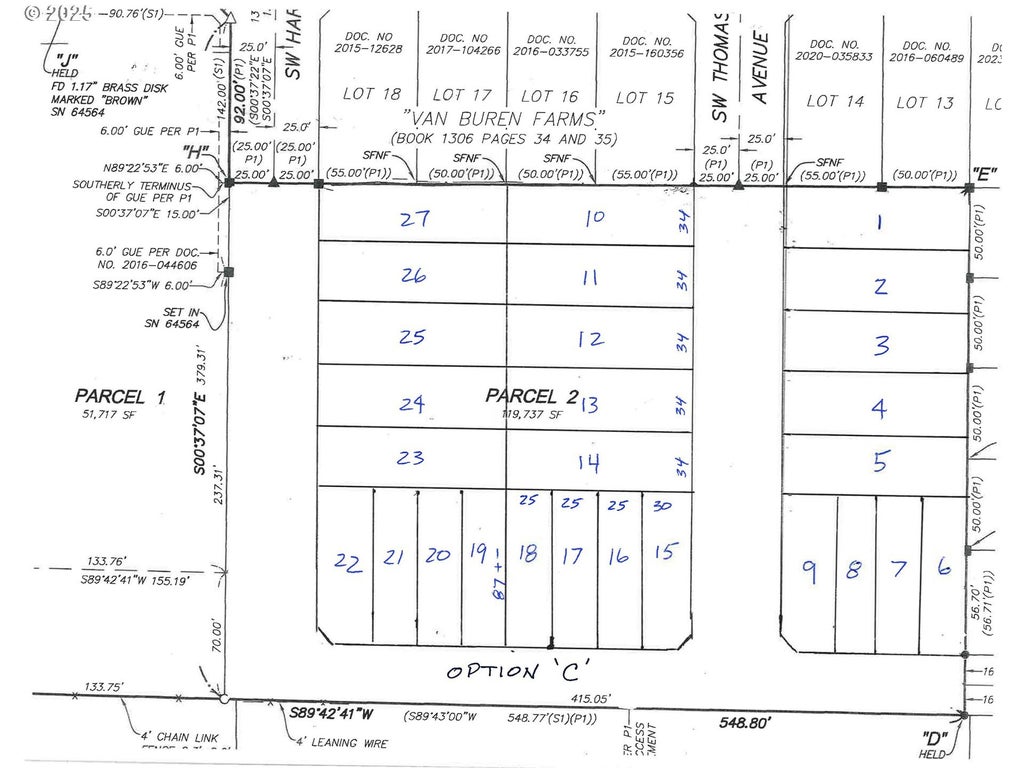 © 2025
90.76'(S1)
6.00' GUE
PER P1
142.00'(S1)
92.00'(P1)
25.0'
(S00°37'22"E
S00°37'07"E
13
1.
SW HAR
"J"
HELD
FD 1.17" BRASS DISK
MARKED "BROWN"
SN 64564
DOC. NO
2015-12628
DOC. NO
2017-104266
DOC. NO.
2016-033755
DOC. NO.
2015-160356
SW THOMAS
AVENUE
DOC. NO.
2020-035833
DOC. NO.
2016-060489
LOT 18
LOT 17
LOT 16
LOT 15
LOT 14
LOT 13
"VAN BUREN FARMS"
(BOOK 1306 PAGES 34 AND 35)
6.00' GUE PER P1
25.0'
25.0'
25.0'
"H"
N89°22'53"E 6.00'
SOUTHERLY TERMINUS
OF GUE PER P1
S00°37'07"E 15.00'
(25.00'
P1)
25.00'
(25.00'
P1)
25.00'
SFNF
SFNF
SFNF
SFNF
(55.00'(P1))
(50.00'(P1))
(50.00'(P1))
(55.00'(P1))
(P1)
25.00'
(P1)
25.00'
(55.00'(P1))
(50.00'(P1))
"E"
6.0' GUE PER DOC.
NO. 2016-044606
S89°22'53"W 6.00'
SET IN
SN 64564
27
10
34
1
50.00'(P1)
26
11
34
2
50.00'(P1)
25
12
34
3
PARCEL 1
51,717 SF
S00°37'07"E 379.31'
PARCEL 2
119,737 SF
24
13
34
4
50.00'(P1)
23
14
34
5
50.00'(P1)
237.31'
25
25
25
30
22
21
20
19
87 +-
18
17
16
15
9
8
7
6
56.70'
(56.71'(P1))
133.76'
S89°42'41"W 155.19'
70.00'
OPTION 'C'
16
16
133.75'
415.05'
S89°42'41"W
(S89°43'00"W
548.77'(S1)(P1))
548.80'
4' CHAIN LINK
4' LEANING WIRE
ER P1
CCESS
EMENT
"D"
HELD